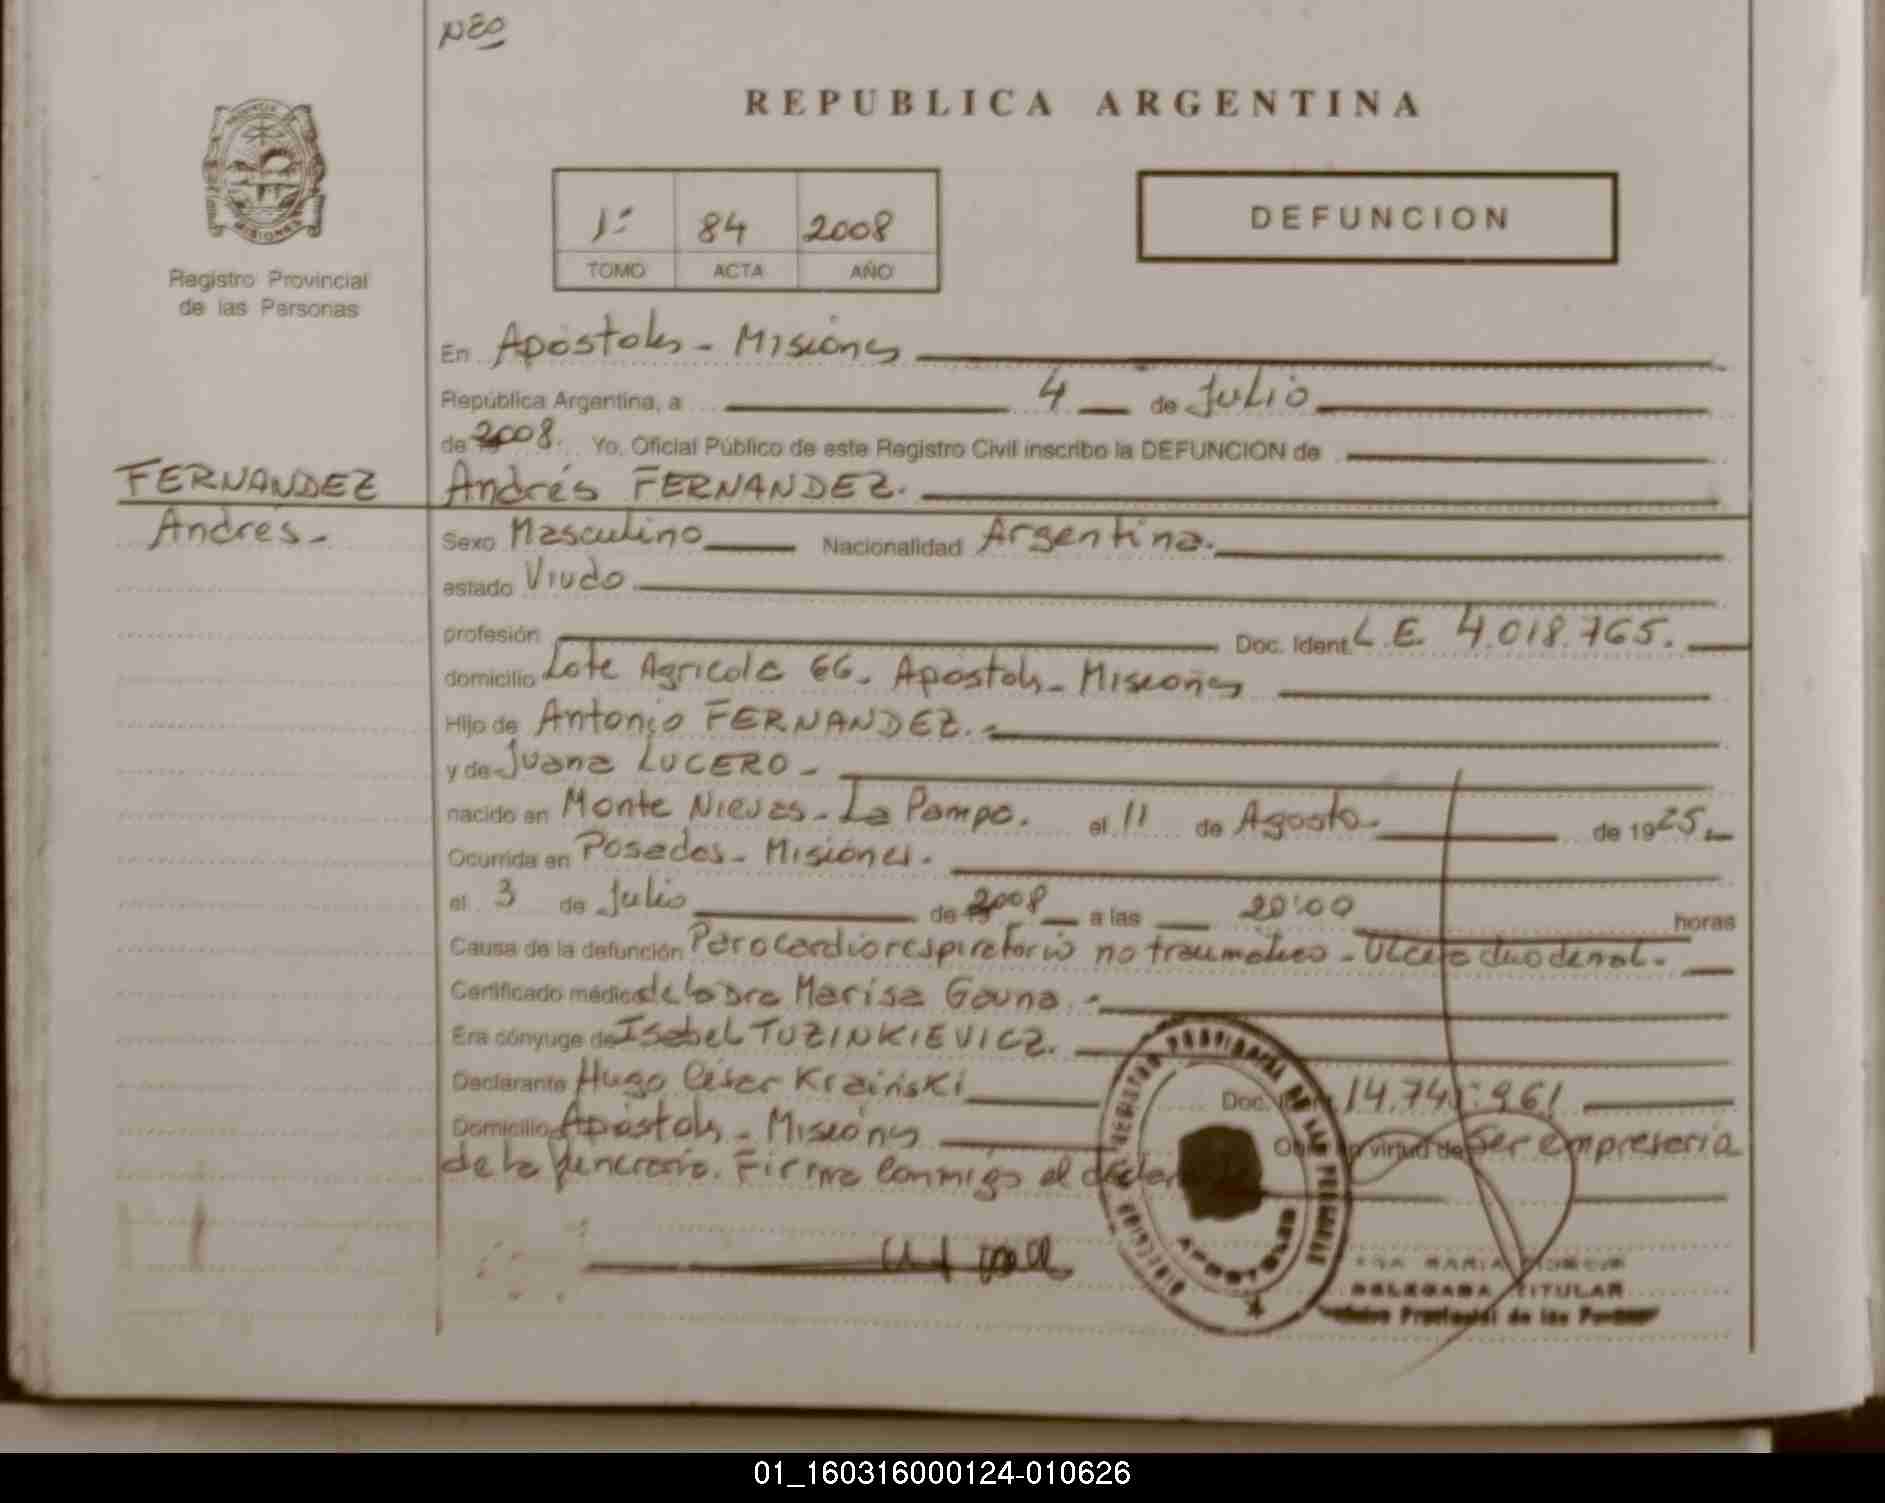 NEO
REPUBLICA ARGENTINA
PROVINCIA
MISIONES
Registro Provincial
de las Personas
1º 84 2008
TOMO ACTA AÑO
DEFUNCION
En Apóstoles - Misiones
República Argentina, a 4 de Julio
de 2008. Yo, Oficial Público de este Registro Civil inscribo la DEFUNCION de
FERNANDEZ Andrés FERNANDEZ.
Andrés - Sexo Masculino Nacionalidad Argentina.
estado Viudo
profesión Doc. Ident. L.E. 4.018.765.
domicilio Lote Agricola 66. Apóstoles - Misiones
Hijo de Antonio FERNANDEZ. -
y de Juana LUCERO -
nacido en Monte Nievas - La Pampa. el 11 de Agosto - de 1925. -
Ocurrida en Posadas - Misiones.
el 3 de Julio de 2008 a las horas
Causa de la defunción Parocardiorespiratorio no traumatico - Ulcera duodenal. -
Certificado médico de la Dra Marisa Gauna. -
Era cónyuge de Isabel TUZINKIEVICZ.
Declarante Hugo César Krainski Doc.
Domicilio Apóstoles - Misiones virtud de Ser empresaria
de la funeraria. Firma conmigo el
APOSTOLES
MARIA
DELEGADA TITULAR
Provincial de las
01_160316000124-010626